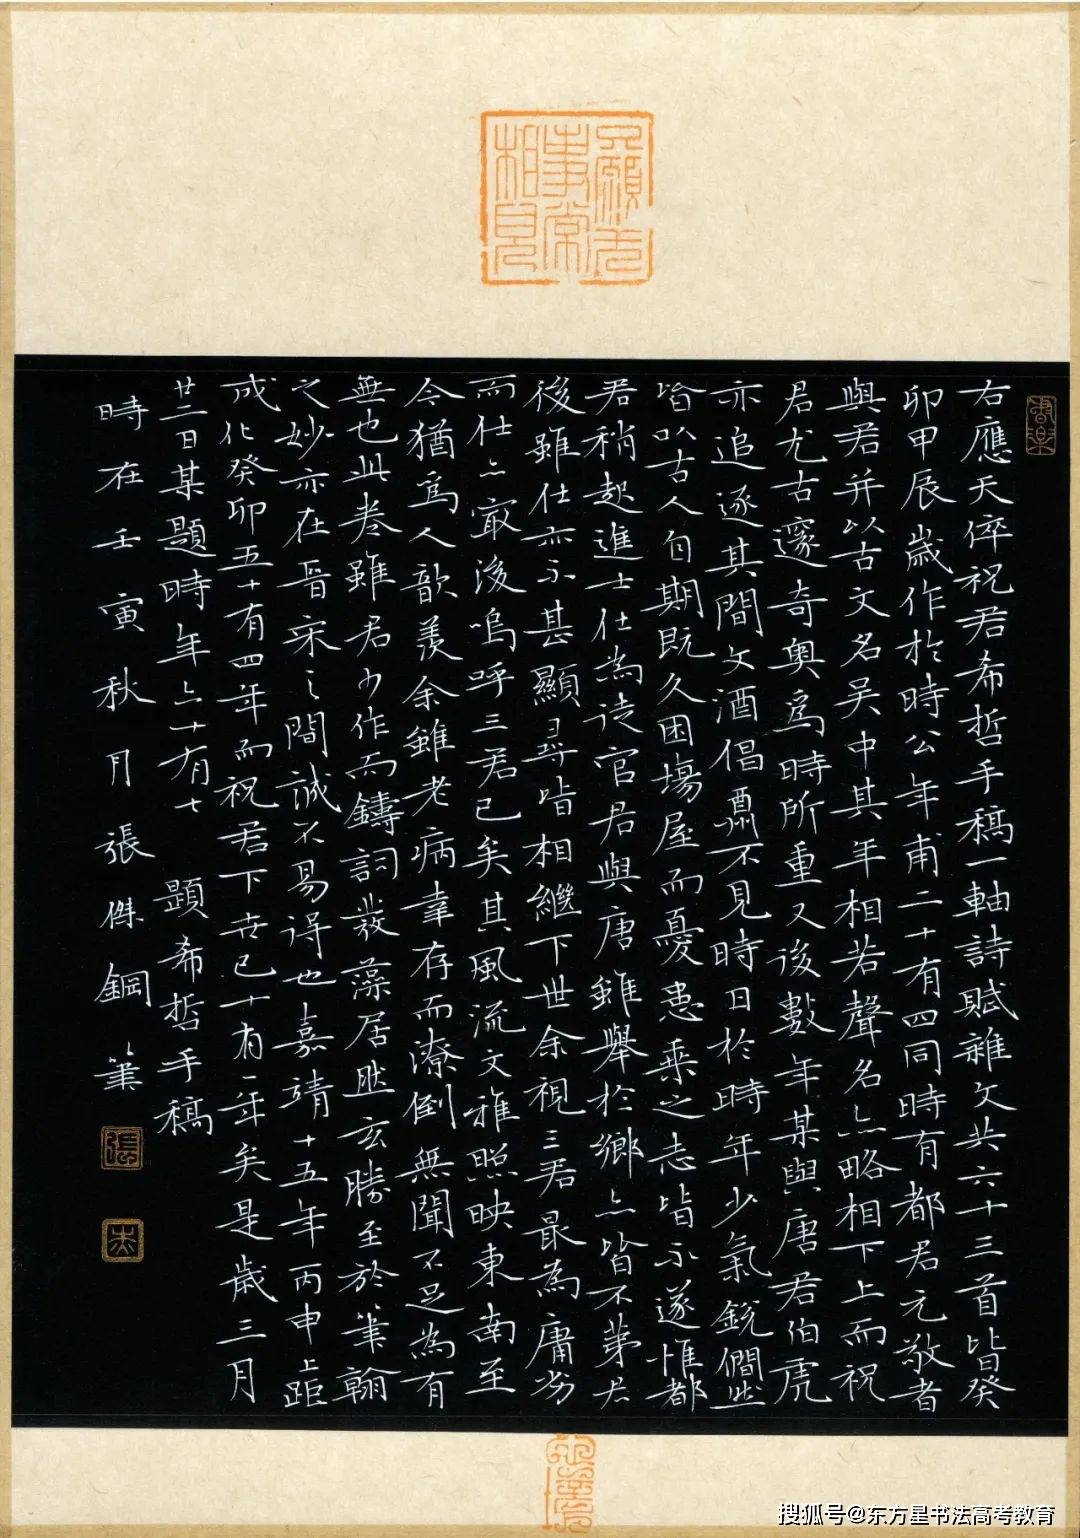 願无事常相見
右應天倅祝君希哲手稿一軸詩賦雜文共六十三首皆癸
卯甲辰歲作於時公年甫二十有四同時有都君元敬者
與君并以古文名吳中其年相若聲名亦略相下上而祝
君尤古邃奇奧爲時所重又後數年某與唐君伯虎
亦追逐其間文酒倡酬不見時日於時年少氣銳僩然
皆以古人自期既久困塲屋而憂患乘之志皆不遂惟都
君稍起進士仕為徒官君與唐雖舉於鄉亦皆不第君
後雖仕亦不甚顯尋皆相繼下世余視三君最為庸劣
而仕亦最後嗚呼三君已矣其風流文雅照映東南至
今猶爲人歆羨余雖老病幸存而潦倒無聞不足為有
無也此卷雖君少作而鑄詞發藻居然玄勝至於筆翰
之妙亦在晉宋之間誠不易得也嘉靖十五年丙申上距
成化癸卯五十有四年而祝君下世已十有一年矣是歲三月
廿二日某題時年六十有七 題希哲手稿
時在壬寅秋月張傑鋼筆
張
搜狐号@东方星书法高考教育